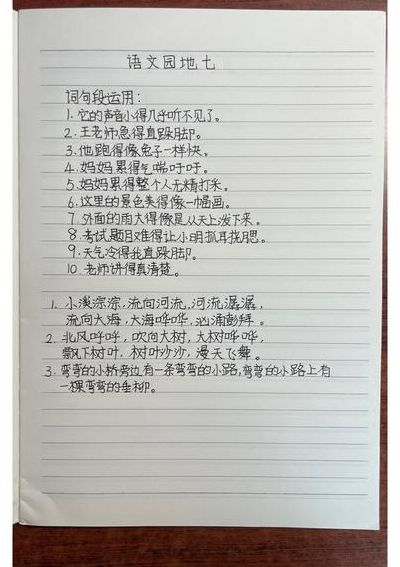 语文园地七
词句段运用：
1. 它的声音小得几乎听不见了。
2. 王老师急得直跺脚。
3. 他跑得像兔子一样快。
4. 妈妈累得气喘吁吁。
5. 妈妈累得整个人无精打采。
6. 这里的景色美得像一幅画。
7. 外面的雨大得像是从天上泼下来。
8. 考试题目难得让小明抓耳挠腮。
9. 天气冷得我直跺脚。
10. 老师讲得真清楚。
1. 小溪淙淙，流向河流，河流潺潺，
流向大海，大海哗哗，汹涌彭拜。
2. 北风呼呼，吹向大树，大树哗哗，
飘下树叶，树叶沙沙，漫天飞舞。
3. 弯弯的小桥旁边有一条弯弯的小路，弯弯的小路上有
一棵弯弯的垂柳。